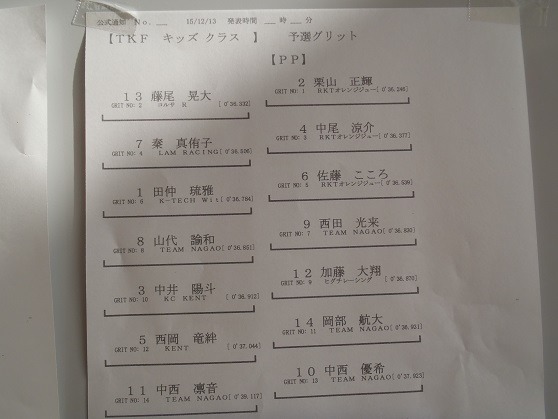 公式通知 No. __ 15/12/13 発表時間 __ 時 __ 分
【TKF キッズ クラス 】 予選グリット
【PP】
2 栗山 正輝
GRIT NO: 1 RKTオレンジジュー[ 0'36.246]
13 藤尾 晃大
GRIT NO: 2 コルサ R [ 0'36.332]
4 中尾 涼介
GRIT NO: 3 RKTオレンジジュー[ 0'36.377]
7 秦 真侑子
GRIT NO: 4 LAM RACING[ 0'36.506]
6 佐藤 こころ
GRIT NO: 5 RKTオレンジジュー[ 0'36.539]
1 田仲 琉雅
GRIT NO: 6 K-TECH Wit[ 0'36.764]
9 西田 光来
GRIT NO: 7 TEAM NAGAO[ 0'36.830]
8 山代 諭和
GRIT NO: 8 TEAM NAGAO[ 0'36.851]
12 加藤 大翔
GRIT NO: 9 ヒグチレーシング [ 0'36.870]
3 中井 陽斗
GRIT NO: 10 KC KENT [ 0'36.912]
14 岡部 航大
GRIT NO: 11 TEAM NAGAO[ 0'36.951]
5 西岡 竜絆
GRIT NO: 12 KENT [ 0'37.044]
10 中西 優希
GRIT NO: 13 TEAM NAGAO[ 0'37.923]
11 中西 凛音
GRIT NO: 14 TEAM NAGAO[ 0'39.117]